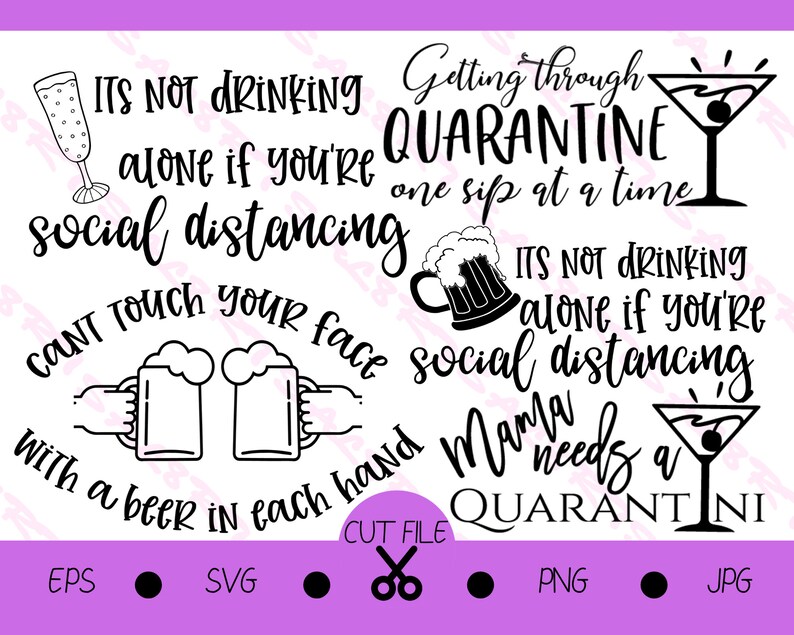 ITS NOT DRINKING
ALONE IF YOU'RE
social distancing
Getting through
QUARANTINE
one sip at a time
ITS NOT DRINKING
ALONE IF YOU'RE
social distancing
CANT TOUCH YOUR FACE
WITH A BEER IN EACH HAND
Mama
needs a
QUARANTINI
CUT FILE
EPS SVG PNG JPG